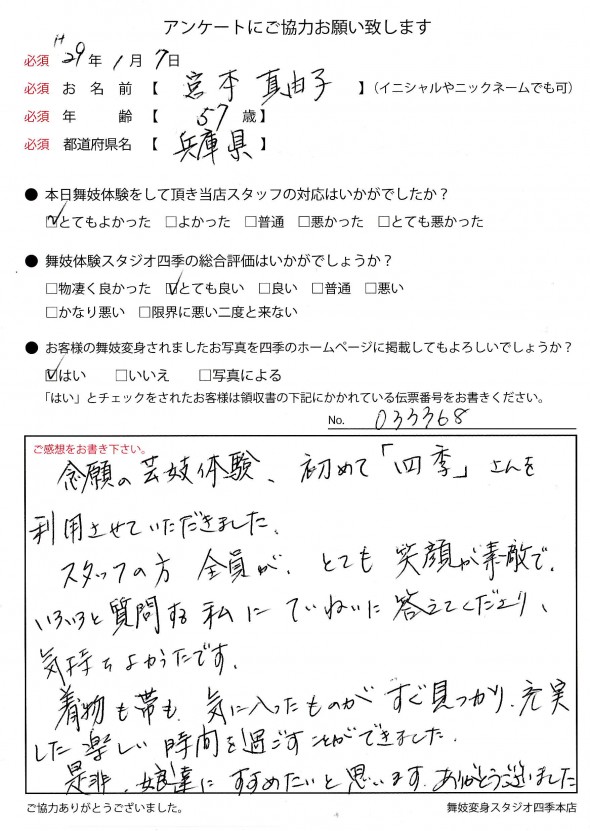 アンケートにご協力お願い致します
必須 H29年 1月 7日
必須 お名前【 宮本 真由子 】(イニシャルやニックネームでも可)
必須 年齢【 57 歳】
必須 都道府県名【 兵庫県 】
● 本日舞妓体験をして頂き当店スタッフの対応はいかがでしたか？
☑とてもよかった □よかった □普通 □悪かった □とても悪かった
● 舞妓体験スタジオ四季の総合評価はいかがでしょうか？
□物凄く良かった ☑とても良い □良い □普通 □悪い
□かなり悪い □限界に悪い二度と来ない
● お客様の舞妓変身されましたお写真を四季のホームページに掲載してもよろしいでしょうか？
☑はい □いいえ □写真による
「はい」とチェックをされたお客様は領収書の下記にかかれている伝票番号をお書きください。
No. 033368
ご感想をお書き下さい。
念願の芸妓体験、初めて「四季」さんを
利用させていただきました。
スタッフの方 全員が、とても 笑顔が素敵で、
いろいろと質問する私に ていねいに 答えてくださり、
気持ちよかったです。
着物も帯も、気に入ったものが すぐ見つかり、充実
した楽しい時間を過ごすことができました。
是非、娘達に すすめたいと思います。ありがとうございました
ご協力ありがとうございました。
舞妓変身スタジオ四季本店